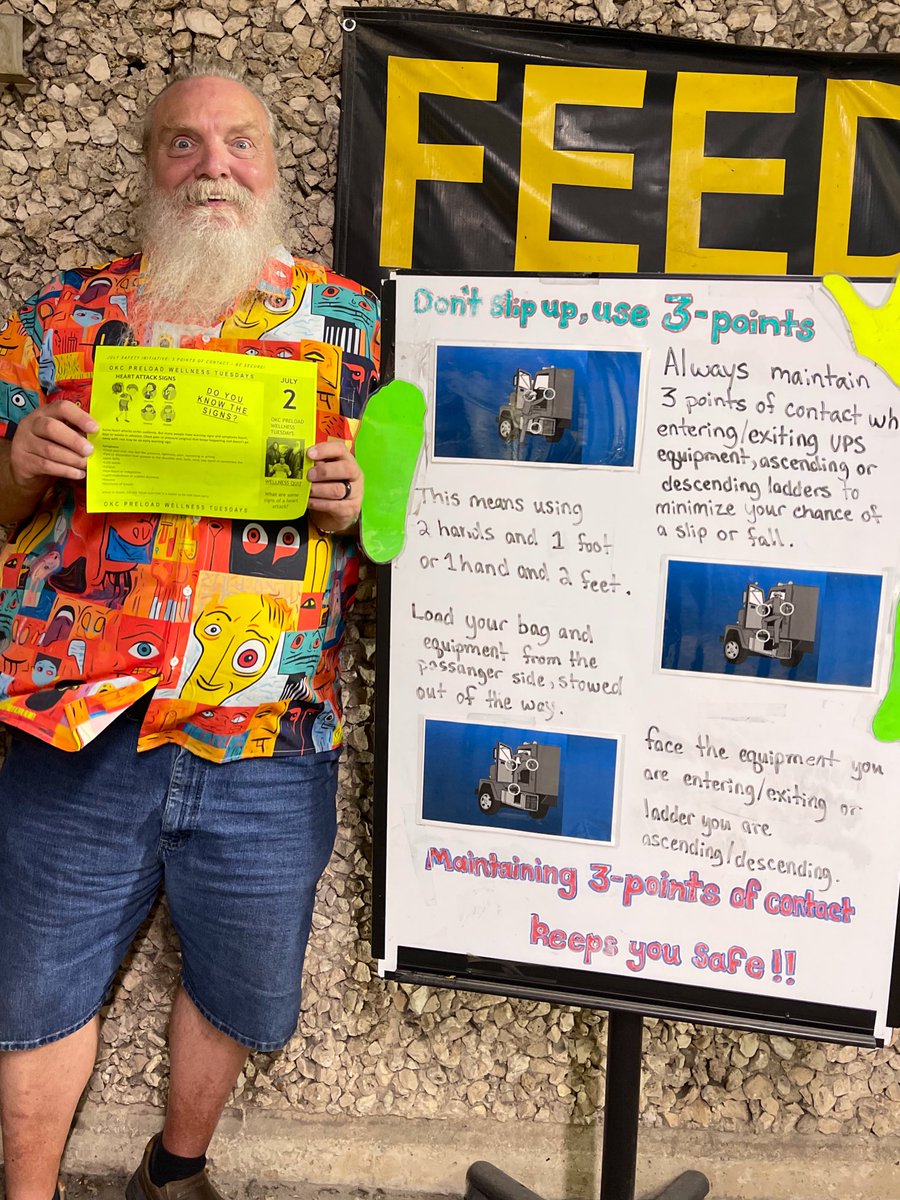 FEED
JULY SAFETY INITIATIVE: 3 POINTS OF CONTACT - BE SECURE!
OKC PRELOAD WELLNESS TUESDAYS
HEART ATTACK SIGNS
DO YOU
KNOW THE
SIGNS?
JULY
2
OKC PRELOAD
WELLNESS
TUESDAYS
WELLNESS QUIZ
What are some
signs of a heart
attack?
OKC PRELOAD WELLNESS TUESDAYS
Don't slip up, use 3-points
Always maintain
3 points of contact wh
entering/exiting UPS
equipment, ascending or
descending ladders to
minimize your chance of
a slip or fall.
This means using
2 hands and 1 foot
or 1 hand and 2 feet.
Load your bag and
equipment from the
passanger side, stowed
out of the way.
face the equipment you
are entering/exiting or
ladder you are
ascending/descending.
Maintaining 3-points of contact
keeps you safe!!